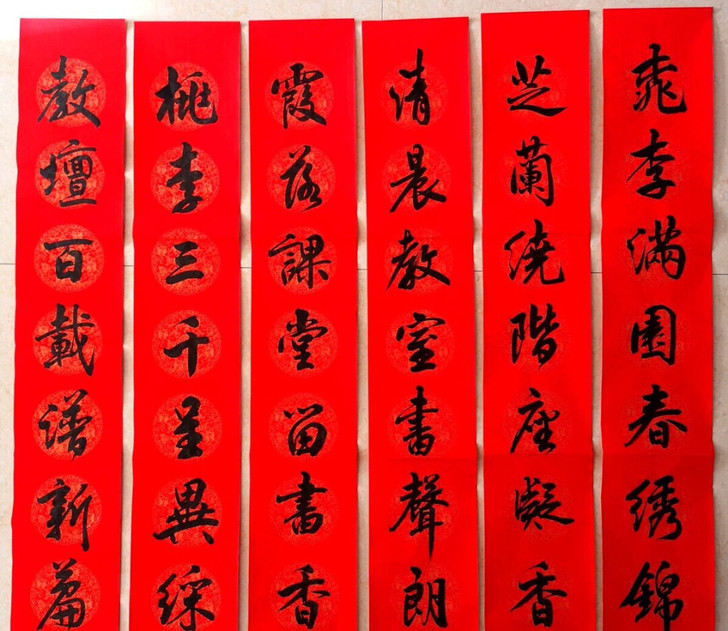 桃李满園春绣錦
芝蘭繞階座凝香
清晨教室書聲朗
霞落課堂留書香
桃李三千呈異綵
教壇百載譜新篇